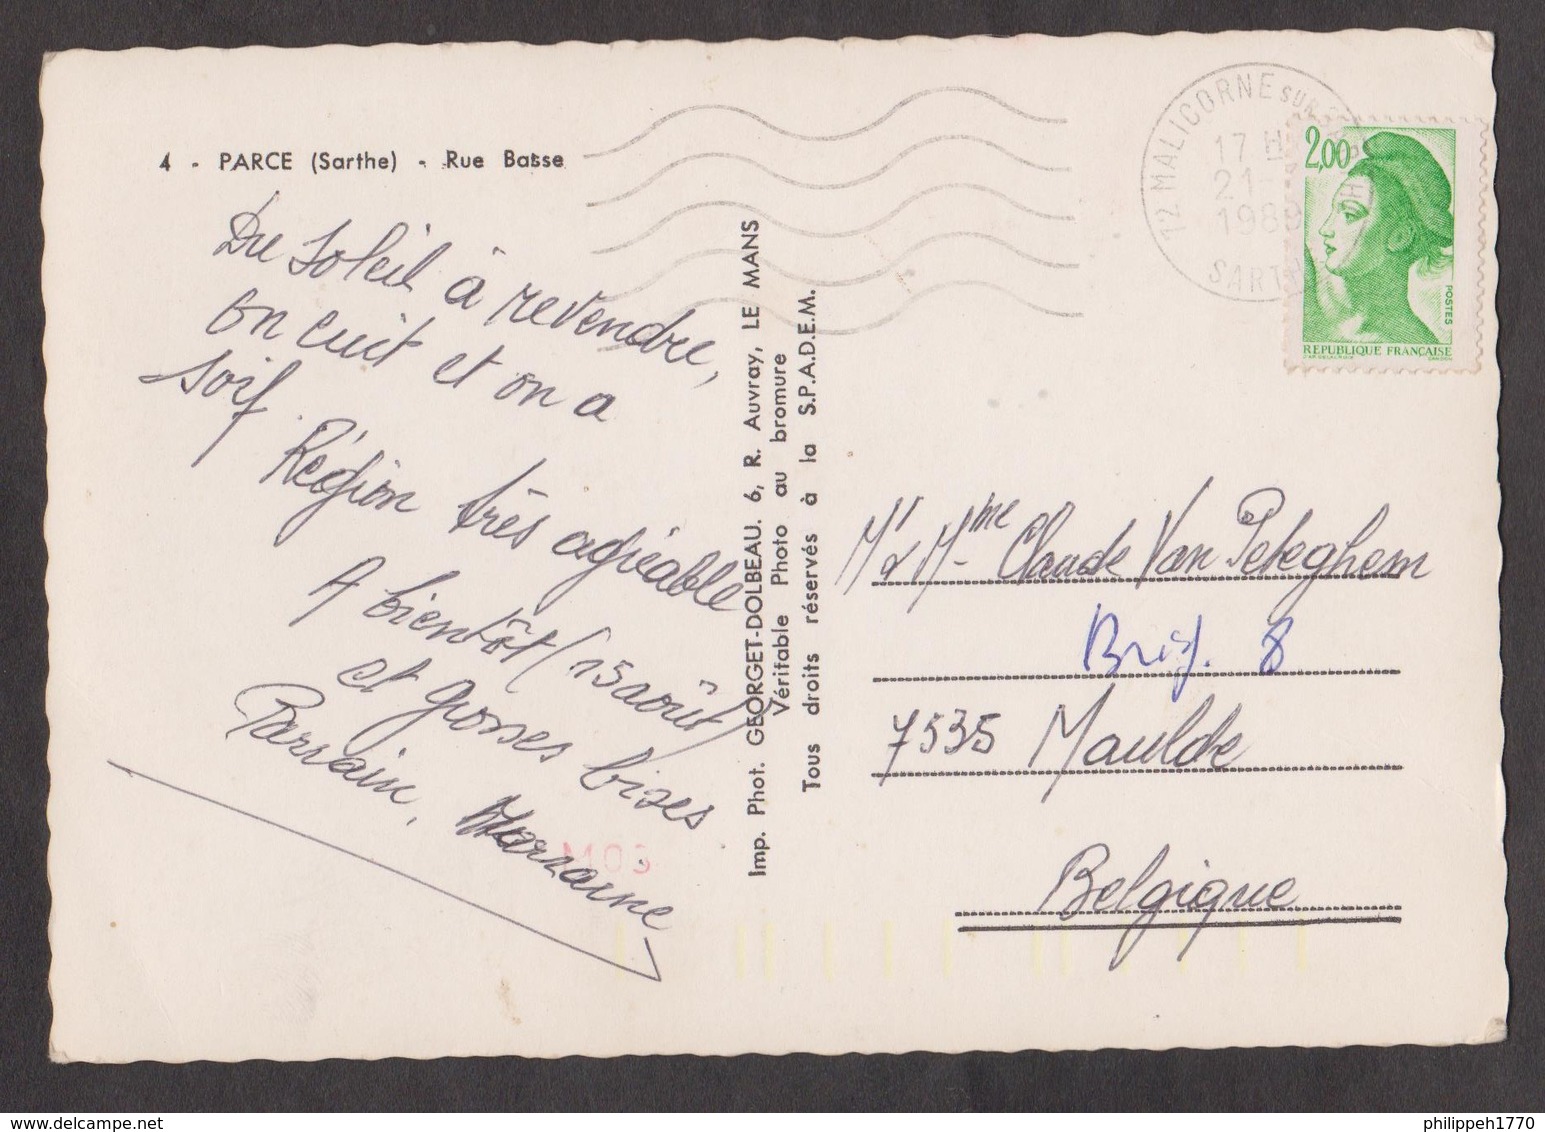 4 - PARCE (Sarthe) - Rue Basse
Du soleil à revendre,
on cuit et on a
soif.
Région très agréable
A bientôt (15 août)
et grosses bises
Parrain, Marraine
M03
Imp. Phot. GEORGET-DOLBEAU. 6, R. Auvray, LE MANS
Véritable Photo au bromure
Tous droits réservés à la S.P.A.D.E.M.
72 MALICORNE SUR SARTHE
17 H
21-
1989
SARTHE
2,00
POSTES
REPUBLIQUE FRANÇAISE
Mr & Mme Claude Van Peteghem
Brig. 8
7535 Maulde
Belgique
philippeh1770
delcampe.net